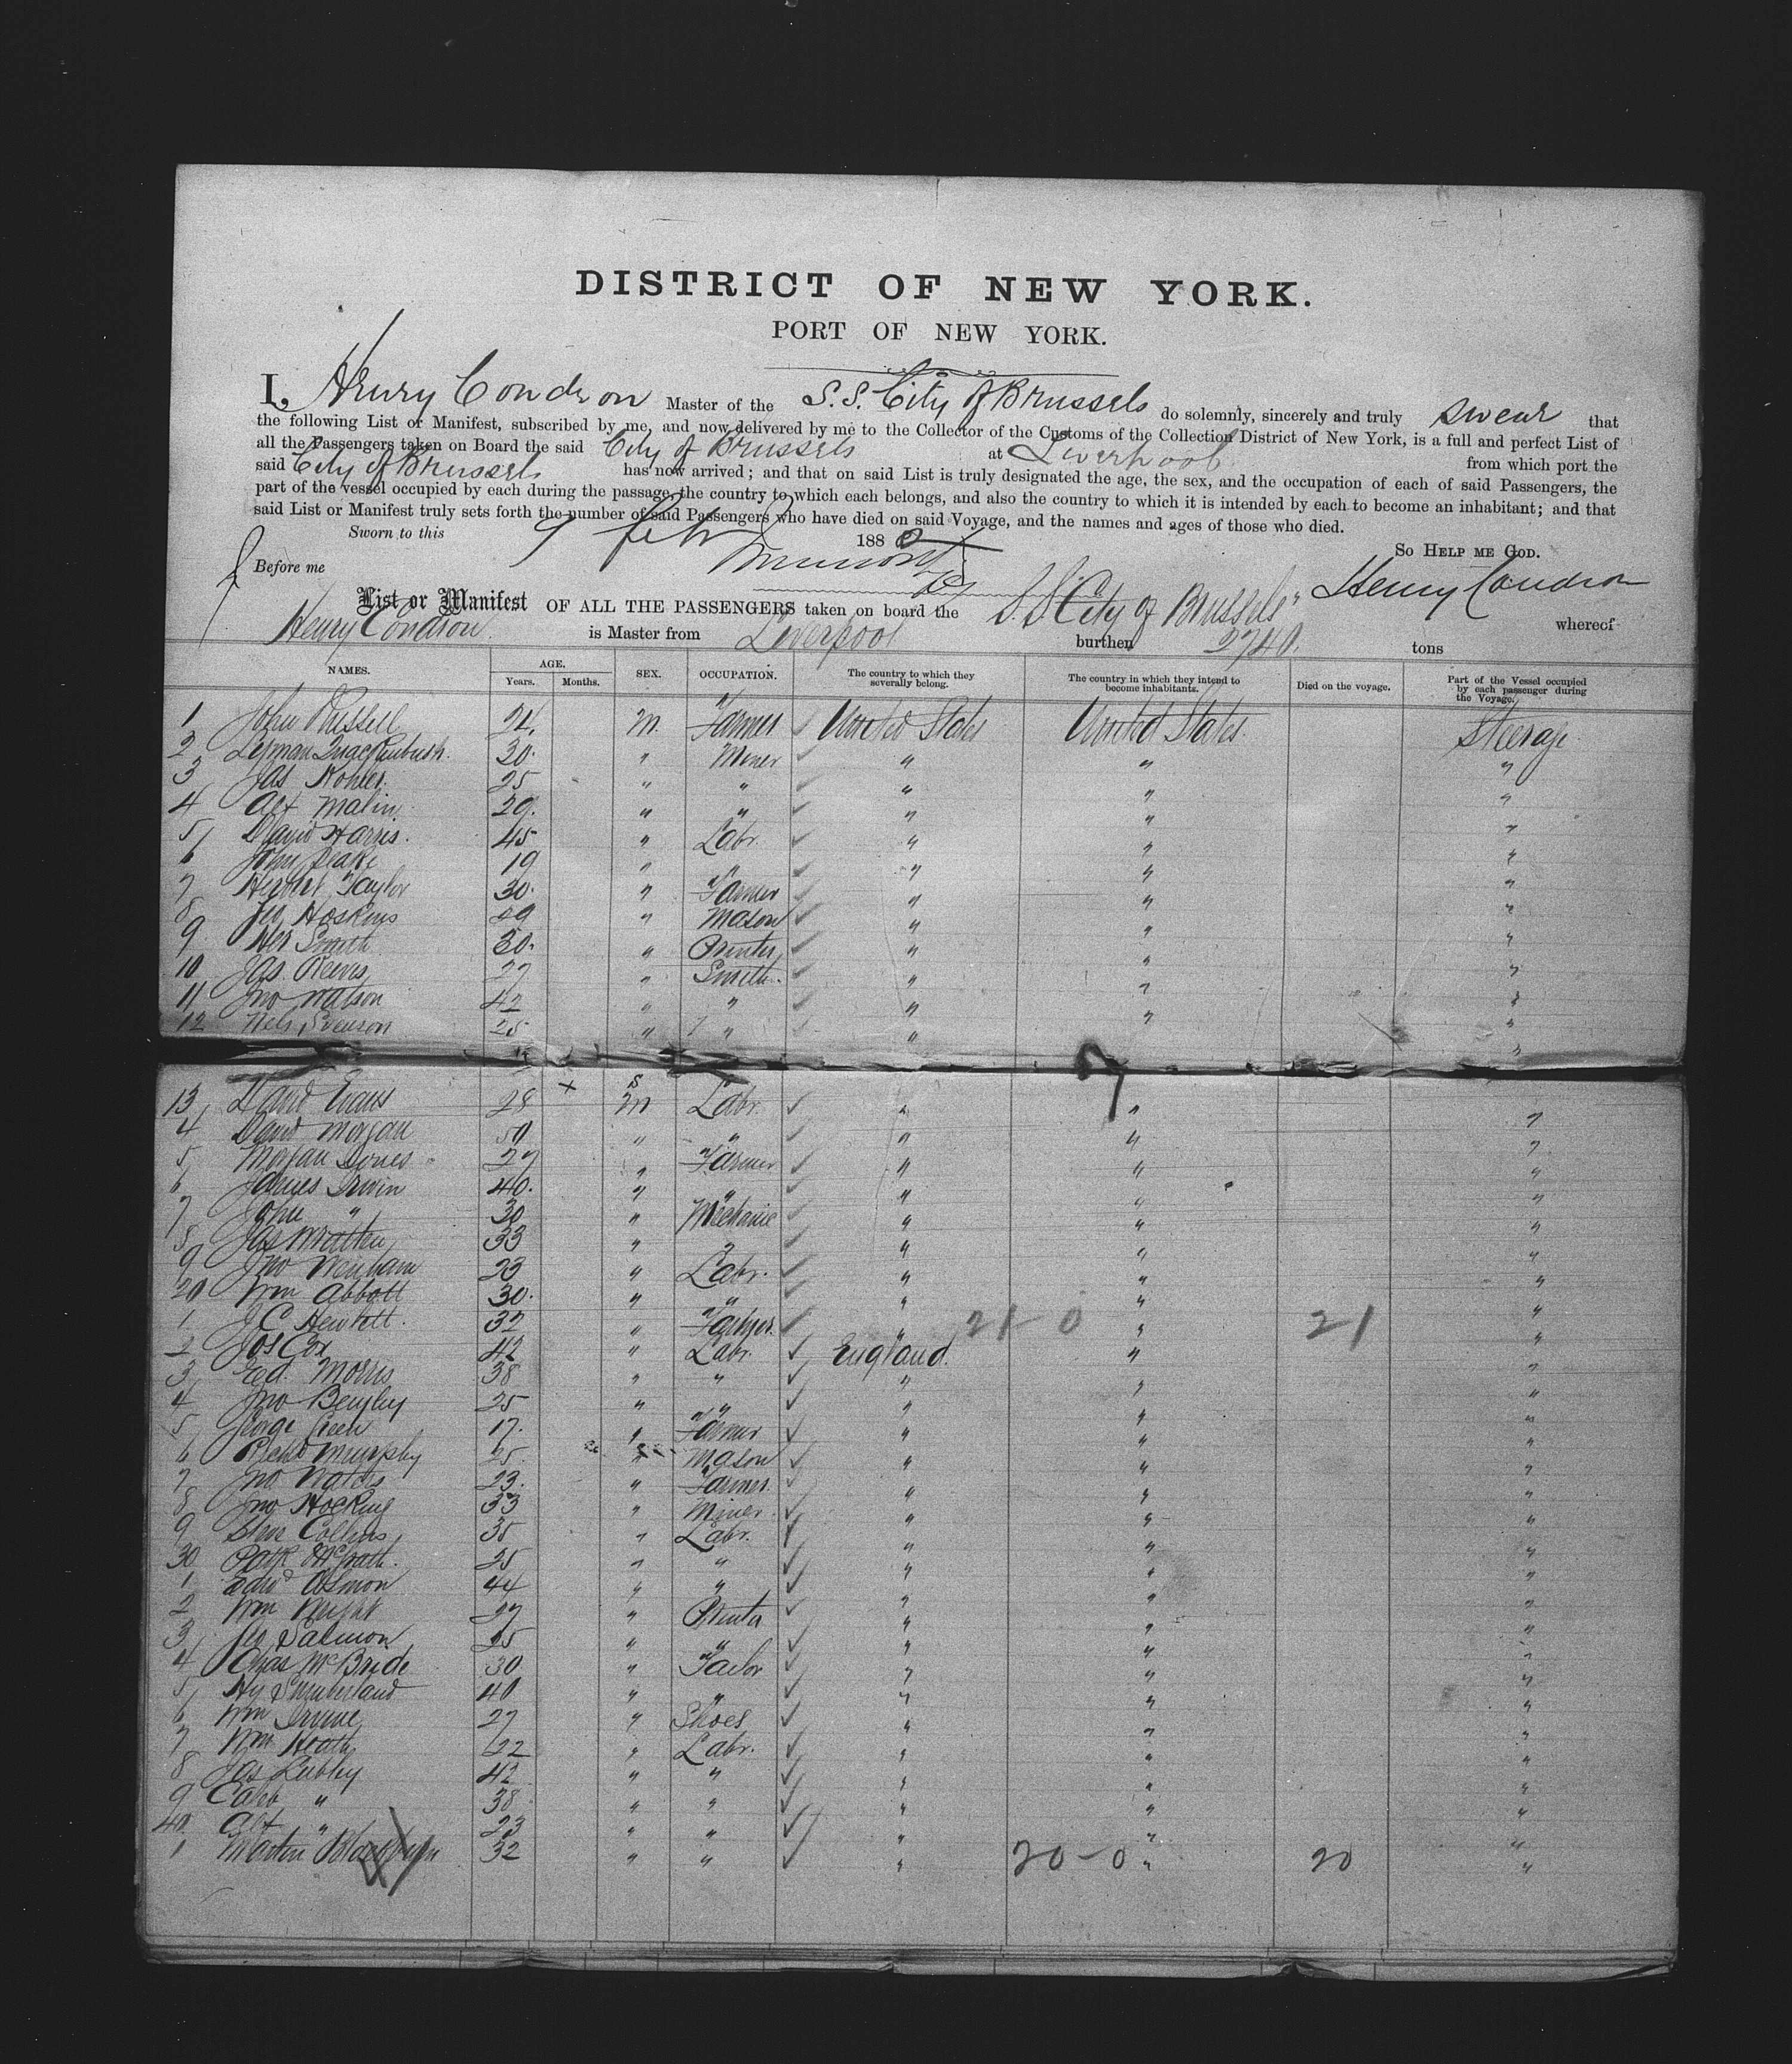 DISTRICT OF NEW YORK.
PORT OF NEW YORK.
I, Henry Condron Master of the S.S. City of Brussels do solemnly, sincerely and truly swear that
the following List or Manifest, subscribed by me, and now delivered by me to the Collector of the Customs of the Collection District of New York, is a full and perfect List of
all the Passengers taken on Board the said City of Brussels at Liverpool from which port the
said City of Brussels has now arrived; and that on said List is truly designated the age, the sex, and the occupation of each of said Passengers, the
part of the vessel occupied by each during the passage, the country to which each belongs, and also the country to which it is intended by each to become an inhabitant; and that
said List or Manifest truly sets forth the number of said Passengers who have died on said Voyage, and the names and ages of those who died.
Sworn to this 9 Feb 1880 So HELP ME GOD.
Before me Henry Condron
List or Manifest OF ALL THE PASSENGERS taken on board the S.S. City of Brussels" whereof
Henry Condron is Master from Liverpool burthen 2740. tons
NAMES. AGE. Years. Months. SEX. OCCUPATION. The country to which they severally belong. The country in which they intend to become inhabitants. Died on the voyage. Part of the Vessel occupied by each passenger during the Voyage.
1 John Russell 24. M. Farmer United States United States Steerage
2 Quackenbush. 30. " Miner " " "
3 Jas Kohler. 25 " " " " "
4 Alf Malin. 29. " " " " "
5 David Harris. 45 " Labr. " " "
6 John 19 " " " " "
7 Herbert Taylor 30. " Farmer " " "
8 Geo Hoskins 49 " Mason " " "
9 Smith 30. " Printer " " "
10 Jas. Reeves 27 " Smith. " " "
11 Jno Watson 42 " " " " "
12 Nels Svenson 25 " " " " "
13 David Evans 28 M Labr. " " "
4 David Morgan 50 " " " " "
5 Morgan Jones 27 " Farmer " " "
6 James Irwin 40. " " " " "
7 John " 30 " Mechanic " " "
8 Jas 33 " " " " "
9 Jno Wenham 23 " Labr. " " "
20 Wm Abbott 30. " " " " "
1 J C Hewlett. 32 " Farmer. " 21-0 " 21 "
2 Jos Cox 42 " Labr. England. " "
3 Ed. Morris 38 " " " " "
4 Jno 25 " " " " "
5 George Green 17. " Farmer " " "
6 Richd Murphy 25. " Mason " " "
7 Jno 23. " Farmer. " " "
8 Jno Hocking 33 " Miner. " " "
9 Collins 35 " Labr. " " "
30 Patk McGrath. 25 " " " " "
1 Edwd 44 " " " " "
2 Wm Wright 27 " " " "
3 Geo Salmon 25 " " " " "
4 Chas McBride 30 " Tailor " " "
5 Hy 40 " " " " "
6 Wm Irvine 27 " Shoes " " "
7 Wm Heath 22 " Labr. " " "
8 Jas 42 " " " " "
9 Caleb " 38 " " " " "
40 Alf " 23 " " " " "
1 Martin 32 " " " 20-0 " 20 "